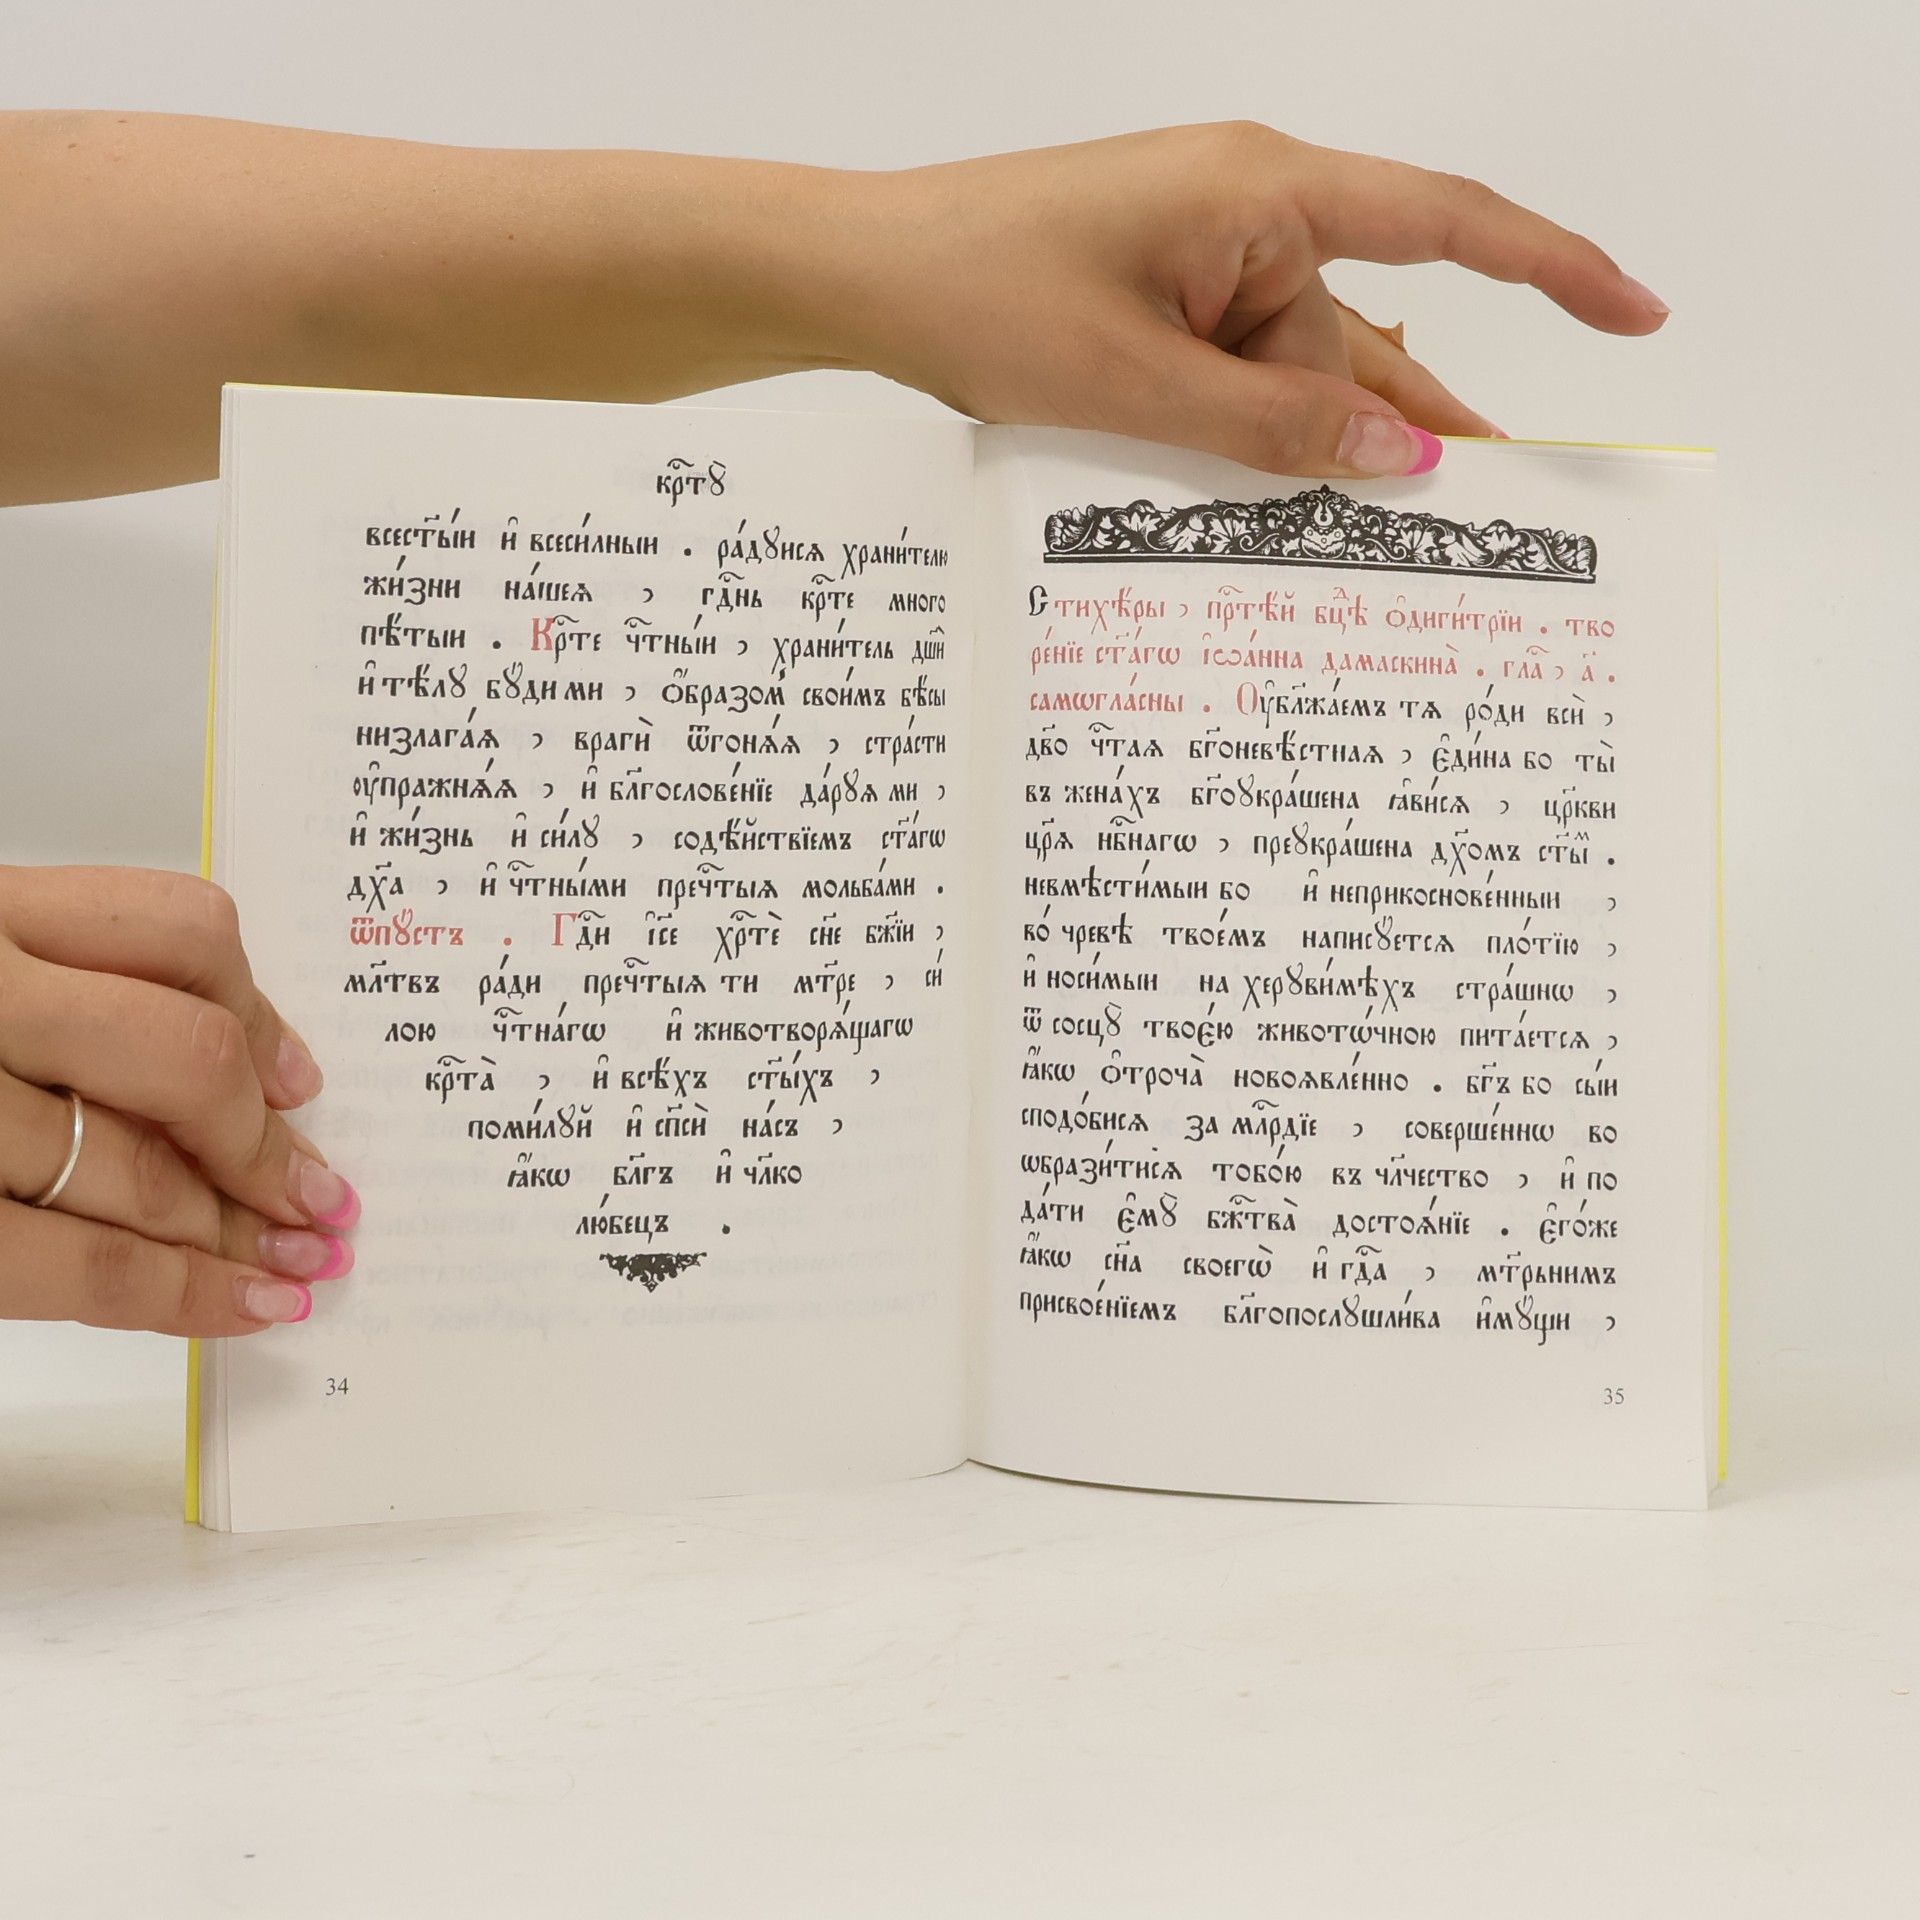 крⷭ҇тꙋ̀
всест҃ы́и и҆ всеси́лныи . ра́дꙋисѧ храни́телю
жи́зни на́шеѧ , гдⷭ҇нь крⷭ҇те много
пѣ́тыи . Крⷭ҇те чⷭ҇тны́и , храни́тель дш҃и
и҆ тѣ́лꙋ бꙋ́ди ми , ѻ҆́бразом̾ свои́мъ бѣ́сы
низлага́ѧ , врагѝ ѿгонѧ́ѧ , стра́сти
ᲂу҆пражнѧ́ѧ , и҆ блгⷭ҇ослове́нїе да́рꙋѧ ми ,
и҆ жи́знь и҆ си́лꙋ , содѣ́йствїемъ ст҃а́гѡ
дх҃а , и҆ чⷭ҇тны́ми преч́тⷭ҇ыѧ мольба́ми .
ѿпꙋ́стъ . Гдⷭ҇и і҆с҃е хрⷭ҇тѐ сн҃е бж҃їи ,
мл҃твъ ра́ди пречⷭ҇тыѧ ти мт҃ре , си́
лою чⷭ҇тна́гѡ и҆ животворѧ́щагѡ
крⷭ҇та̀ , и҆ всѣ́хъ ст҃ы́хъ ,
поми́лꙋй и҆ сп҃сѝ на́съ ,
ꙗ҆́кѡ бл҃гъ и҆ чл҃ко
лю́бецъ .
34
Стихѣ́ры , прⷭ҇тѣ́й бцⷣѣ ѻ҆диги́трїи . тво
ре́нїе ст҃а́гѡ і҆ѡа́нна дамаскина̀ . глⷭ҇а , а҃ .
самѡгла́сны . Оу҆блж҃а́емъ тѧ ро́ди всѝ ,
дв҃о чⷭ҇таѧ бг҃оневѣ́стнаѧ , є҆ди́на бо ты̀
въ жена́хъ бг҃оꙋкра́шена ꙗ҆ви́сѧ , цр҃кви
цр҃ѧ нбⷭ҇нагѡ , преꙋкра́шена дх҃омъ ст҃ыⷨ .
невмѣсти́мыи бо и҆ неприкоснове́нныи ,
во́ чревѣ твое́мъ написꙋ́етсѧ пло́тїю ,
и҆ носи́мыи на херꙋви́мѣхъ стра́шнѡ ,
ѿ сосцꙋ̀ твоє́ю животѡ́чною пита́єтсѧ ,
ꙗ҆́кѡ ѻ҆троча̀ новоѧвле́нно . бг҃ъ бо сы́и
сподо́бисѧ за млⷭ҇рдїе , соверше́ннѡ во
ѡбрази́тисѧ тобо́ю въ чл҃чество , и҆ по
да́ти є҆мꙋ̀ бжⷭ҇тва̀ достоѧ́нїе . є҆го́же
ꙗ҆́кѡ сн҃а своегѡ̀ и҆ гдⷭ҇а , мт҃рьнимъ
присвое́нїемъ бл҃гопослꙋшли́ва и҆мꙋ́щи ,
35